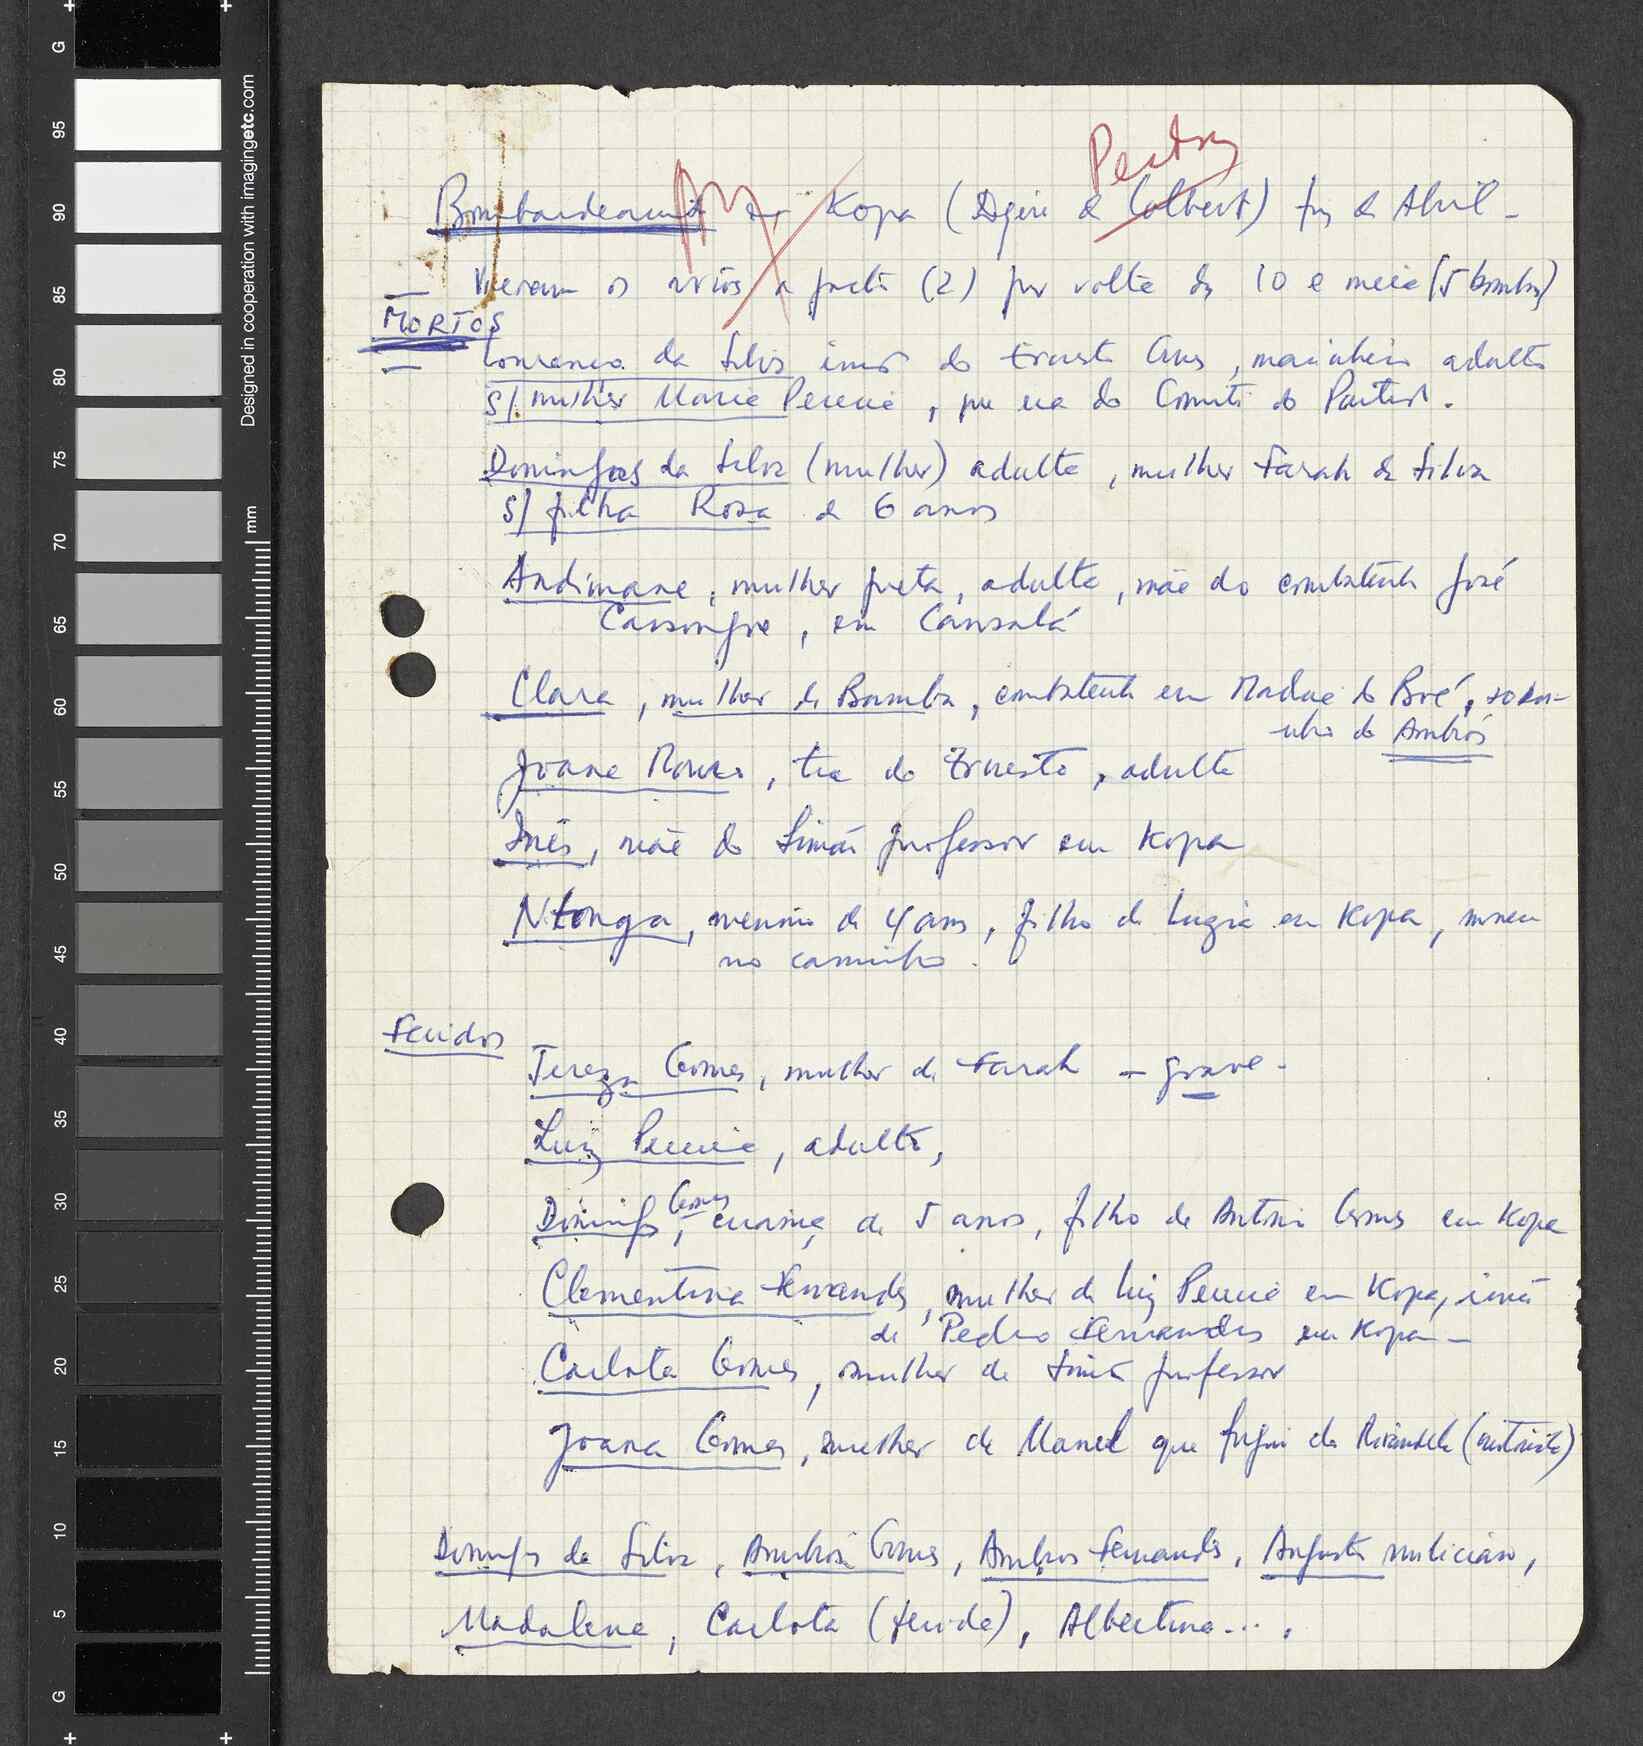 Pedro
Bombardeamento de Kopa (Agri de Colbert) fim de Abril -
- Vieram os aviões a jacto (2) por volta das 10 e meia (5 bombas)
MORTOS
- Lourenço da Silva irmão do Ernesto Gomes, marinheiro adulto
s/ mulher Maria Pereira, que era do Comité do Partido.
Domingas da Silva (mulher) adulta, mulher Farah da Silva
s/ filha Rosa de 6 anos
Andimane, mulher preta, adulta, mãe do combatente José
Cassongue, em Cansalá
Clara, mulher de Bamba, combatente em Madina do Boé, sobri-
nho do Ambrós
Joana, tia do Ernesto, adulta
Inês, mãe do Simão professor em Kopa
Ntonga, menino de 4 anos, filho de Luzia em Kopa, morreu
no caminho.
Feridos
Tereza Gomes, mulher de Farah - grave -
Luiz Pereira, adulto,
Gomes
Domingos, criança de 5 anos, filho de António Gomes em Kopa
Clementina Fernandes, mulher de Luiz Pereira em Kopa, irmã
de Pedro Fernandes em Kopa -
Carlota Gomes, mulher de Simão professor
Joana Gomes, mulher de Manel que fugiu da Mirandela (motorista)
Domingos da Silva, Ambrósio Gomes, Ambrós Fernandes, Augusto miliciano,
Madalena, Carlota (ferida), Albertina ... .
Designed in cooperation with imagingetc.com
mm
G
95
90
85
80
75
70
65
60
55
50
45
40
35
30
25
20
15
10
5
G